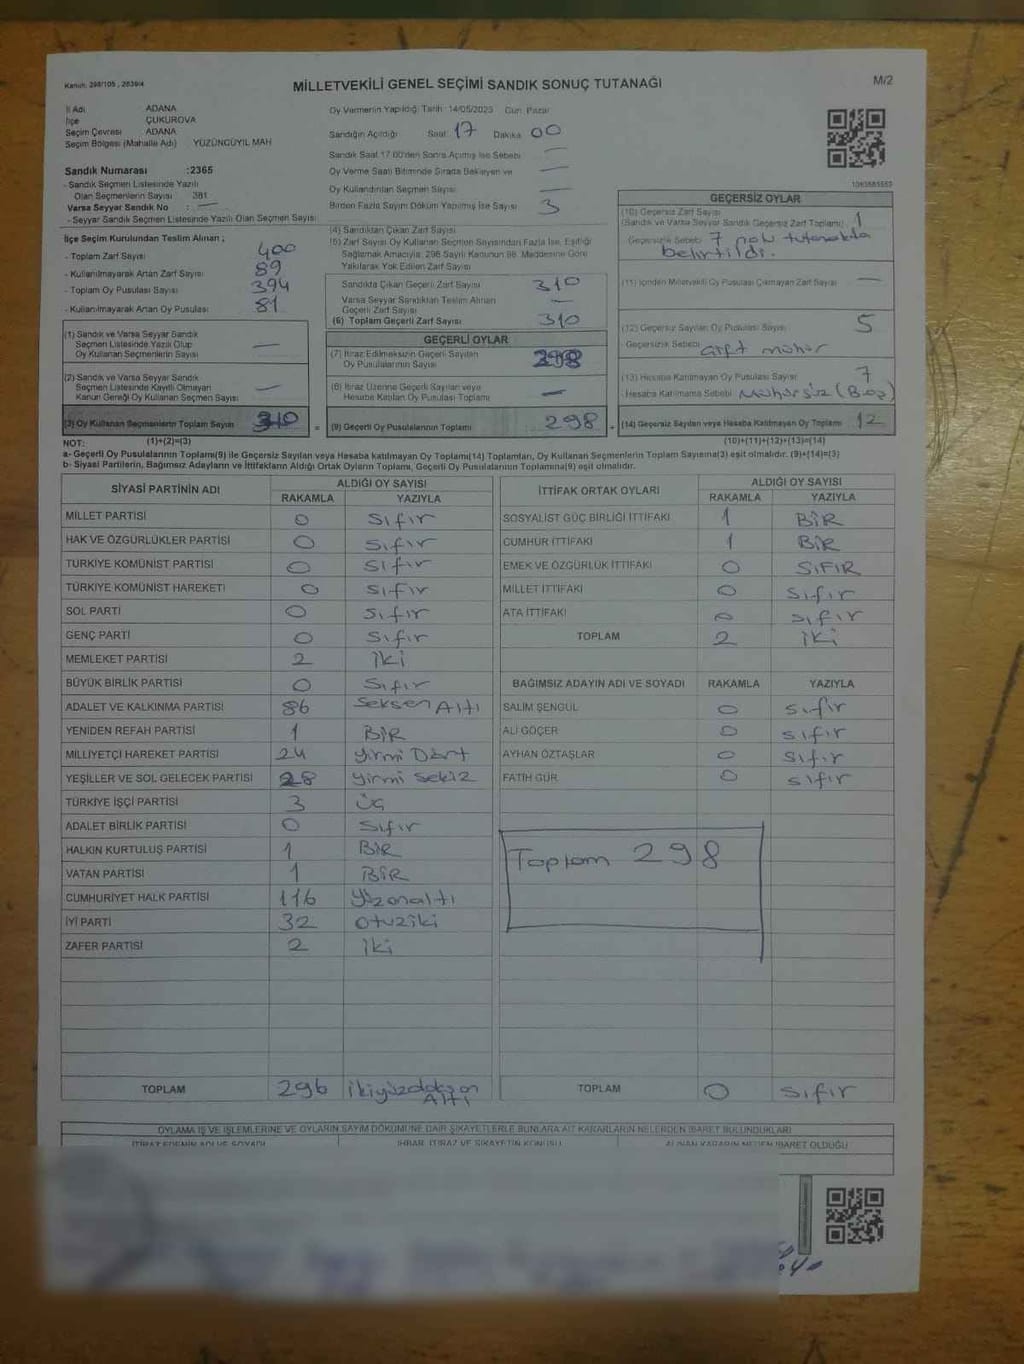 Kanun: 298/105, 2839/4
MİLLETVEKİLİ GENEL SEÇİMİ SANDIK SONUÇ TUTANAĞI
M/2
İl Adı ADANA
İlçe ÇUKUROVA
Seçim Çevresi ADANA
Seçim Bölgesi (Mahalle Adı) YÜZÜNCÜYIL MAH
Sandık Numarası :2365
- Sandık Seçmen Listesinde Yazılı
Olan Seçmenlerin Sayısı 381
Varsa Seyyar Sandık No : —
- Seyyar Sandık Seçmen Listesinde Yazılı Olan Seçmen Sayısı
Oy Vermenin Yapıldığı Tarih : 14/05/2023 Gün: Pazar
Sandığın Açıldığı Saat: 17 Dakika 00
Sandık Saat 17.00'den Sonra Açılmış İse Sebebi —
Oy Verme Saati Bitiminde Sırada Bekleyen ve —
Oy Kullandırılan Seçmen Sayısı —
Birden Fazla Sayım Döküm Yapılmış İse Sayısı 3
İlçe Seçim Kurulundan Teslim Alınan ;
- Toplam Zarf Sayısı 400
- Kullanılmayarak Artan Zarf Sayısı 89
- Toplam Oy Pusulası Sayısı 394
- Kullanılmayarak Artan Oy Pusulası 81
(1) Sandık ve Varsa Seyyar Sandık
Seçmen Listesinde Yazılı Olup
Oy Kullanan Seçmenlerin Sayısı —
(2) Sandık ve Varsa Seyyar Sandık
Seçmen Listesinde Kayıtlı Olmayan
Kanun Gereği Oy Kullanan Seçmen Sayısı —
(3) Oy Kullanan Seçmenlerin Toplam Sayısı 310
(4) Sandıktan Çıkan Zarf Sayısı
(5) Zarf Sayısı Oy Kullanan Seçmen Sayısından Fazla İse, Eşitliği
Sağlamak Amacıyla; 298 Sayılı Kanunun 98. Maddesine Göre
Yakılarak Yok Edilen Zarf Sayısı
Sandıkta Çıkan Geçerli Zarf Sayısı 310
Varsa Seyyar Sandıktan Teslim Alınan
Geçerli Zarf Sayısı —
(6) Toplam Geçerli Zarf Sayısı 310
GEÇERLİ OYLAR
(7) İtiraz Edilmeksizin Geçerli Sayılan
Oy Pusulalarının Sayısı 298
(8) İtiraz Üzerine Geçerli Sayılan veya
Hesaba Katılan Oy Pusulası Toplamı —
(9) Geçerli Oy Pusulalarının Toplamı 298
1093581553
GEÇERSİZ OYLAR
(10) Geçersiz Zarf Sayısı
(Sandık ve Varsa Seyyar Sandık Geçersiz Zarf Toplamı) 1
Geçersizlik Sebebi: 7 nolu tutanakta
belirtildi.
(11) İçinden Milletvekili Oy Pusulası Çıkmayan Zarf Sayısı —
(12) Geçersiz Sayılan Oy Pusulası Sayısı 5
- Geçersizlik Sebebi çift mühür
(13) Hesaba Katılmayan Oy Pusulası Sayısı 7
- Hesaba Katılmama Sebebi Mühürsüz (Boş)
(14) Geçersiz Sayılan veya Hesaba Katılmayan Oy Toplamı 12
NOT: (1)+(2)=(3)
(10)+(11)+(12)+(13)=(14)
a- Geçerli Oy Pusulalarının Toplamı(9) ile Geçersiz Sayılan veya Hesaba katılmayan Oy Toplamı(14) Toplamları, Oy Kullanan Seçmenlerin Toplam Sayısına(3) eşit olmalıdır. (9)+(14)=(3)
b- Siyasi Partilerin, Bağımsız Adayların ve İttifakların Aldığı Ortak Oyların Toplamı, Geçerli Oy Pusulalarının Toplamına(9) eşit olmalıdır.
SİYASİ PARTİNİN ADI ALDIĞI OY SAYISI
RAKAMLA YAZIYLA
MİLLET PARTİSİ 0 sıfır
HAK VE ÖZGÜRLÜKLER PARTİSİ 0 sıfır
TÜRKİYE KOMÜNİST PARTİSİ 0 sıfır
TÜRKİYE KOMÜNİST HAREKETİ 0 sıfır
SOL PARTİ 0 sıfır
GENÇ PARTİ 0 sıfır
MEMLEKET PARTİSİ 2 iki
BÜYÜK BİRLİK PARTİSİ 0 sıfır
ADALET VE KALKINMA PARTİSİ 86 seksen Altı
YENİDEN REFAH PARTİSİ 1 BİR
MİLLİYETÇİ HAREKET PARTİSİ 24 yirmi Dört
YEŞİLLER VE SOL GELECEK PARTİSİ 28 yirmi sekiz
TÜRKİYE İŞÇİ PARTİSİ 3 üç
ADALET BİRLİK PARTİSİ 0 sıfır
HALKIN KURTULUŞ PARTİSİ 1 BİR
VATAN PARTİSİ 1 BİR
CUMHURİYET HALK PARTİSİ 116 yüzonaltı
İYİ PARTİ 32 otuziki
ZAFER PARTİSİ 2 iki
TOPLAM 296 ikiyüzdoksan
ALTI
İTTİFAK ORTAK OYLARI ALDIĞI OY SAYISI
RAKAMLA YAZIYLA
SOSYALİST GÜÇ BİRLİĞİ İTTİFAKI 1 BİR
CUMHUR İTTİFAKI 1 BİR
EMEK VE ÖZGÜRLÜK İTTİFAKI 0 SIFIR
MİLLET İTTİFAKI 0 sıfır
ATA İTTİFAKI 0 sıfır
TOPLAM 2 iki
BAĞIMSIZ ADAYIN ADI VE SOYADI RAKAMLA YAZIYLA
SALİM ŞENGÜL 0 sıfır
ALİ GÖÇER 0 sıfır
AYHAN ÖZTAŞLAR 0 sıfır
FATİH GÜR 0 sıfır
Toplam 298
TOPLAM 0 sıfır
OYLAMA İŞ VE İŞLEMLERİNE VE OYLARIN SAYIM DÖKÜMÜNE DAİR ŞİKAYETLERLE BUNLARA AİT KARARLARIN NELERDEN İBARET BULUNDUKLARI
İTİRAZ EDENİN ADI VE SOYADI İHBAR, İTİRAZ VE ŞİKAYETİN KONUSU ALINAN KARARIN NEDEN İBARET OLDUĞU